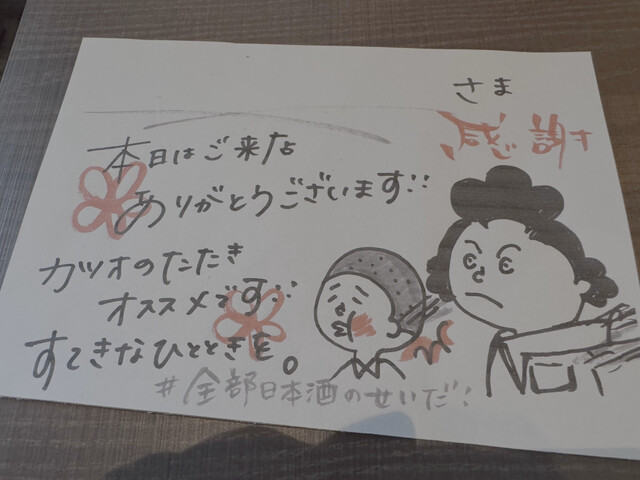 さま
感謝
本日はご来店
ありがとうございます!!
カツオのたたき
オススメです!!
すてきなひとときを。
#全部日本酒のせいだ!